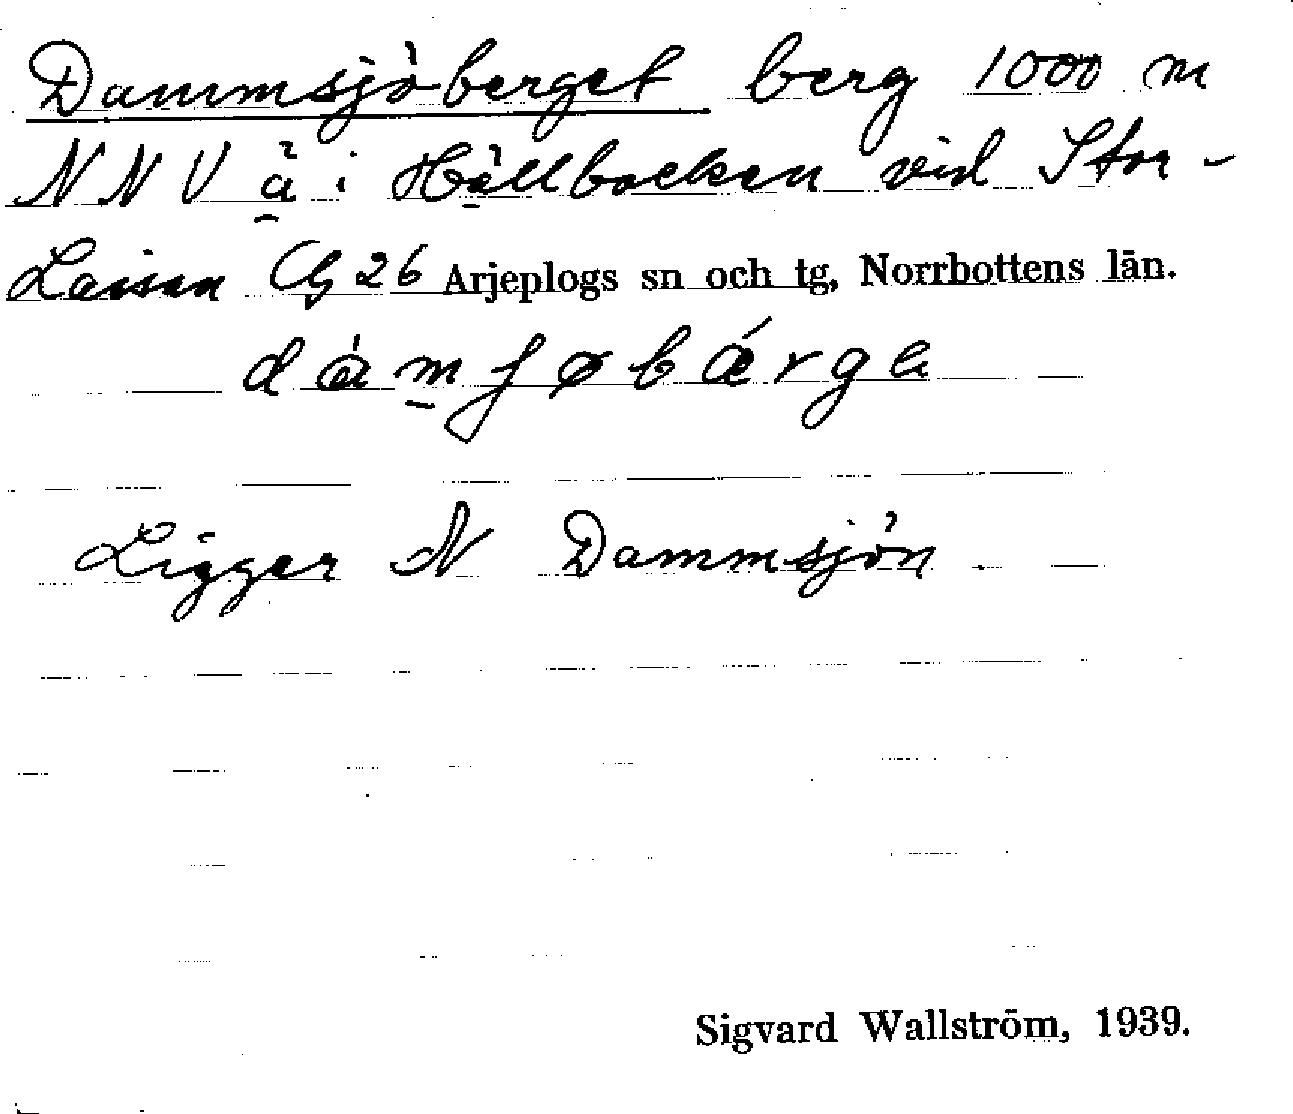 Dammsjöberget berg 1000 m
NNV ä i Hällbacken vid Stor-
Laisan Cg 26 Arjeplogs sn och tg, Norrbottens län.
Ligger N Dammsjön.
Sigvard Wallström, 1939.